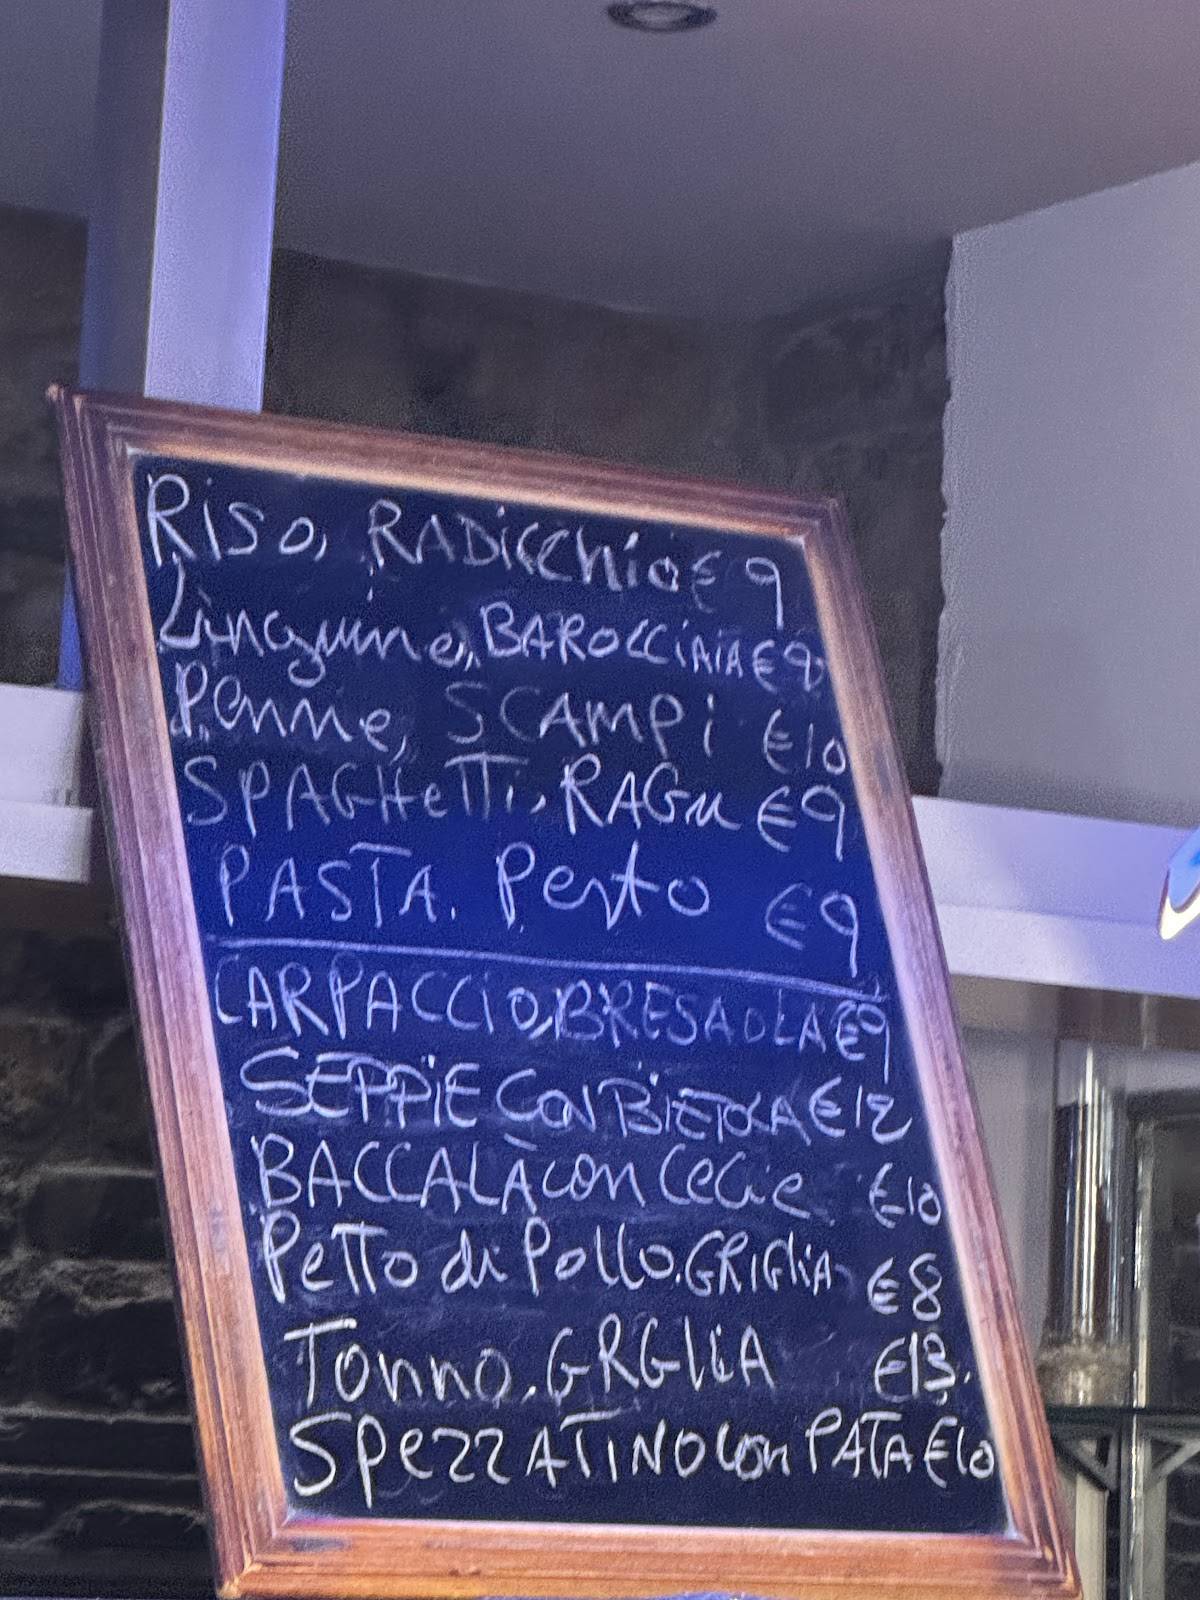 RiSo, RADiCChio € 9
Linguine, BAROCCiAiA € 9
Penne, SCAMPi €10
SPAGHeTTi, RAGu €9
PASTA. Pesto €9
CARPACCiO, BRESAOLA €9
SEPPiE CoN BiETOLA €12
BACCALÀ con Cecie €10
PeTTo di Pollo. GRiGliA €8
Tonno. GRGliA €13.
SPezzATiNO con PATA €10